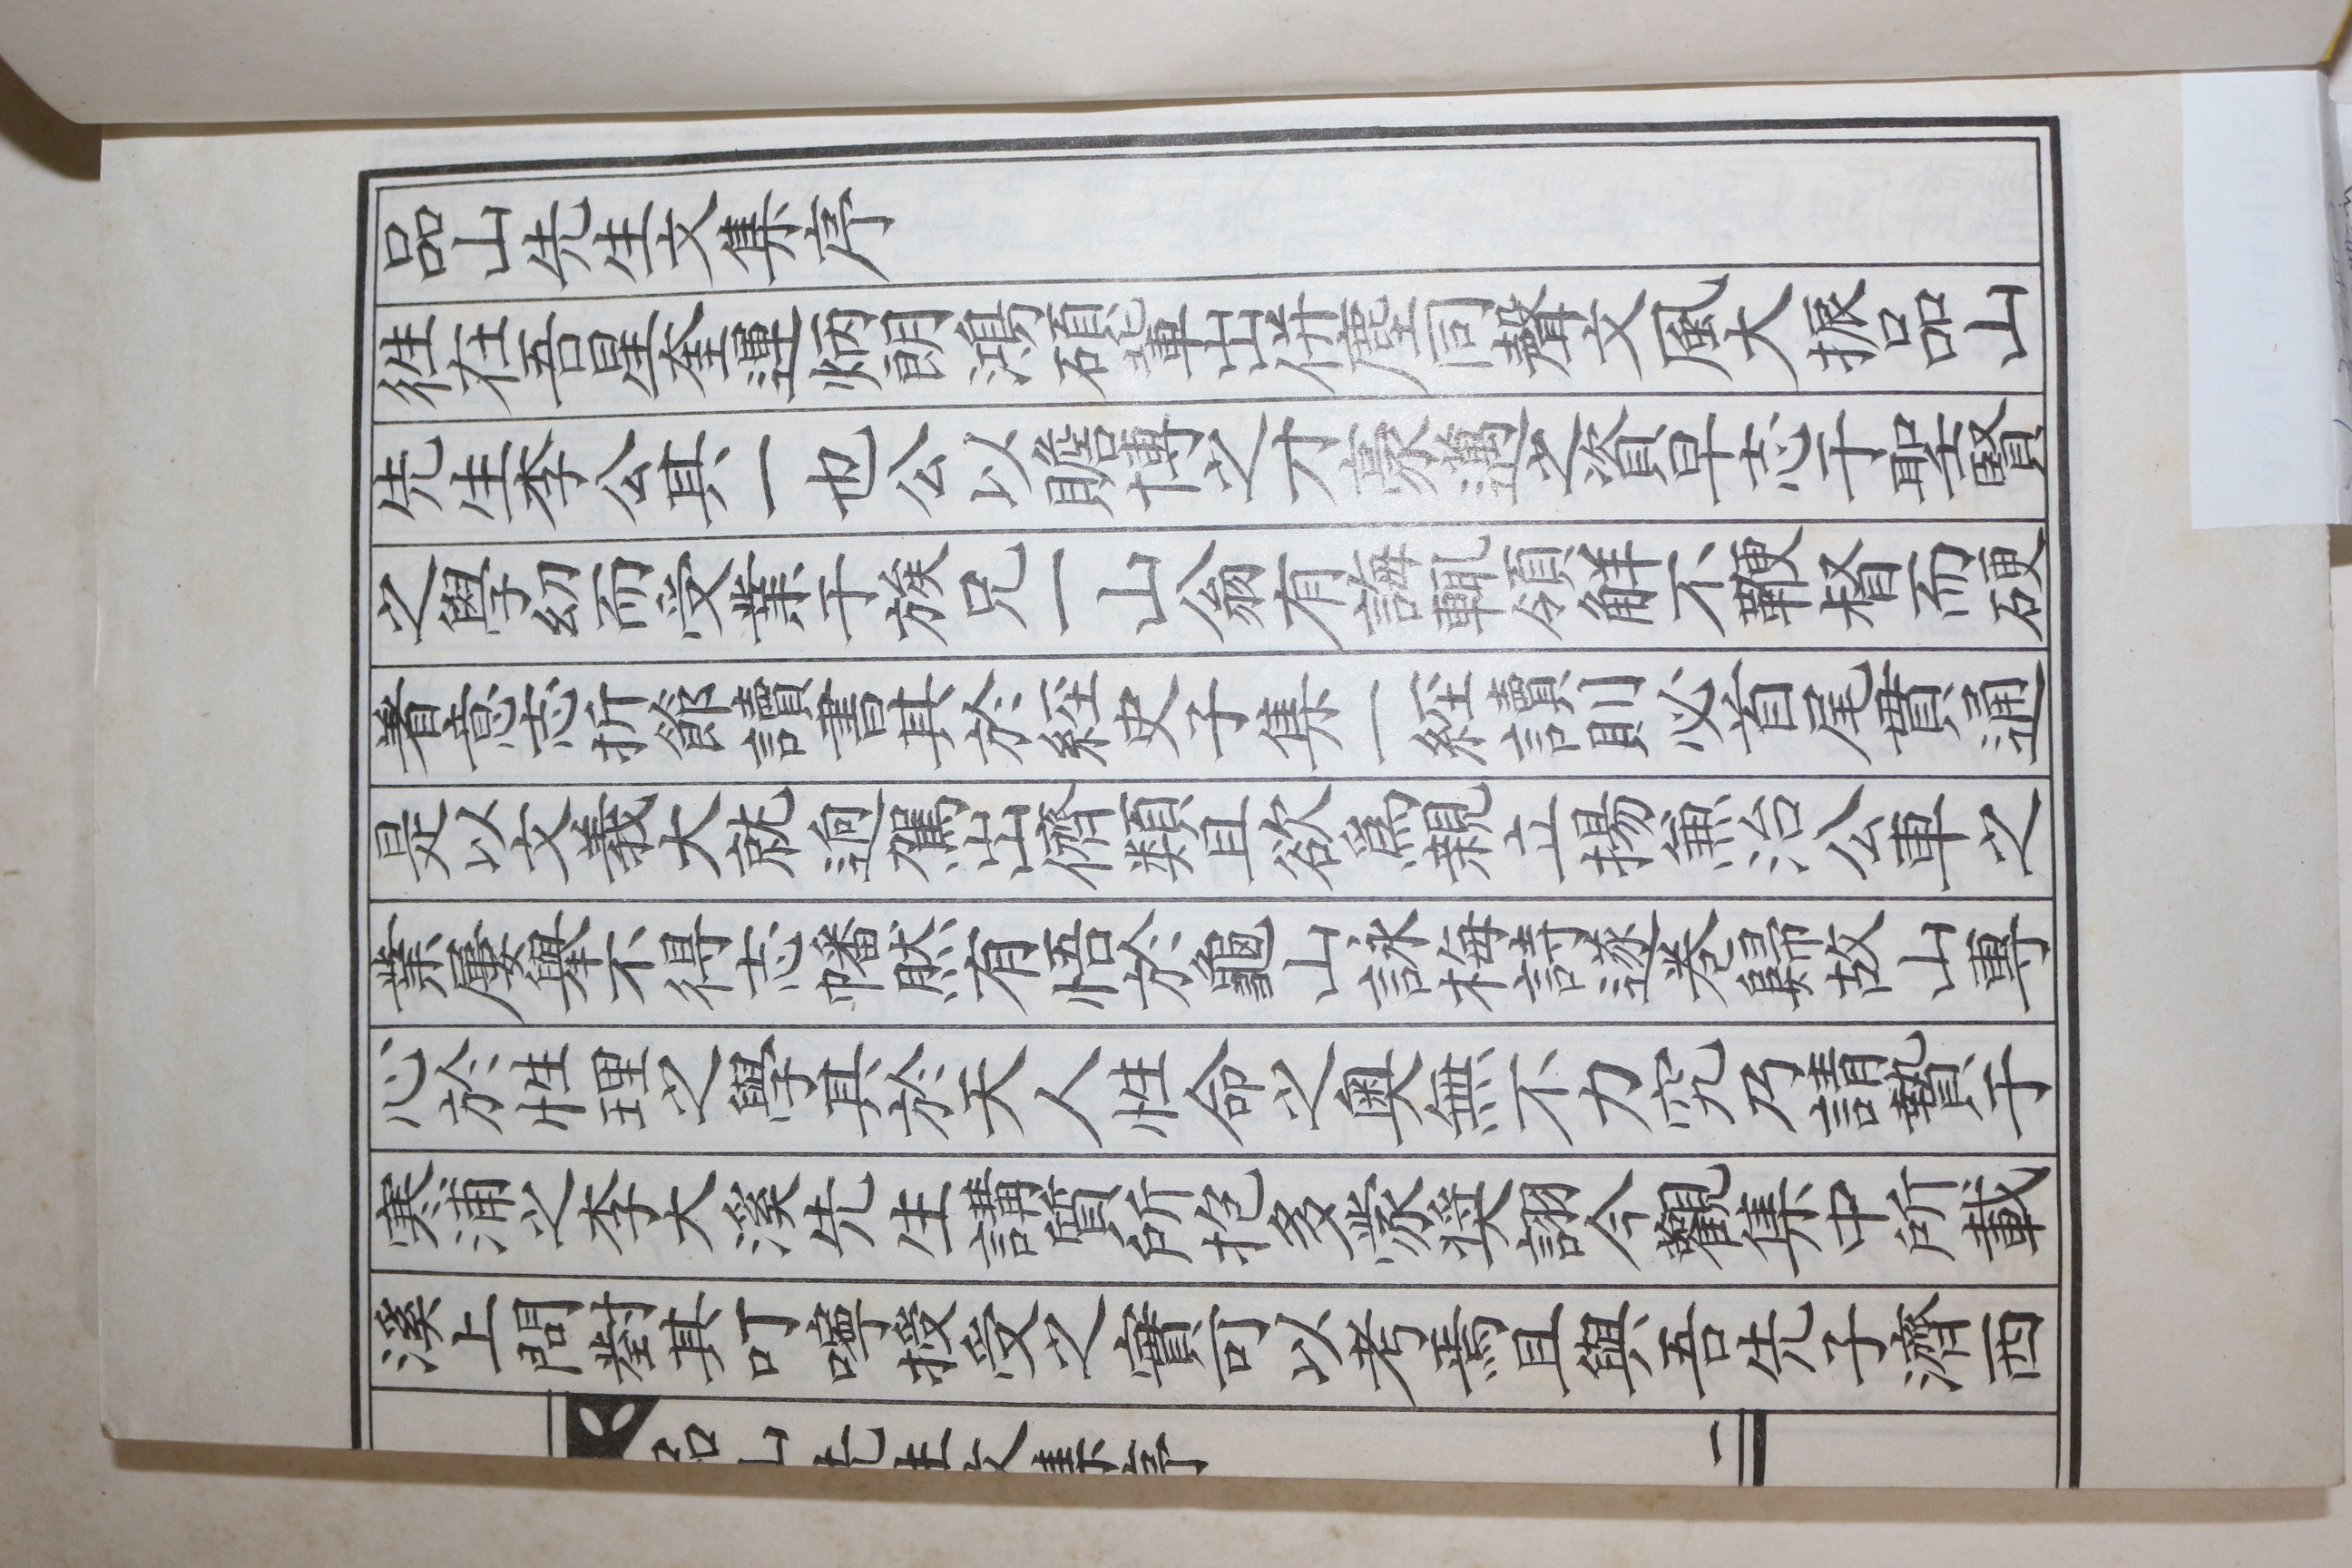 品山先生文集序
往在吾星奎運炳朗鴻碩輩出幷麾同聲文風大振品山
先生李公其一也公以贍博之才豪邁之資早志于聖賢
之學幼而受業于族兄一山翁有誨輒領解不鞭督而硬
着意志折節讀書其於經史子集一經讀則必首尾貫通
是以文義大就逈駕出儕類且欲爲親立揚兼治公車之
業屢擧不得志幡然有悟於龜山詠梅詩遂卷歸故山專
心於性理之學其於天人性命之奧無不力究乃請贄于
寒浦之李大溪先生講質所抱多蒙奬詡今觀集中所載
溪上問對其叮嚀授受之實可以考焉且與吾先子濟西
品山先生文集序
一